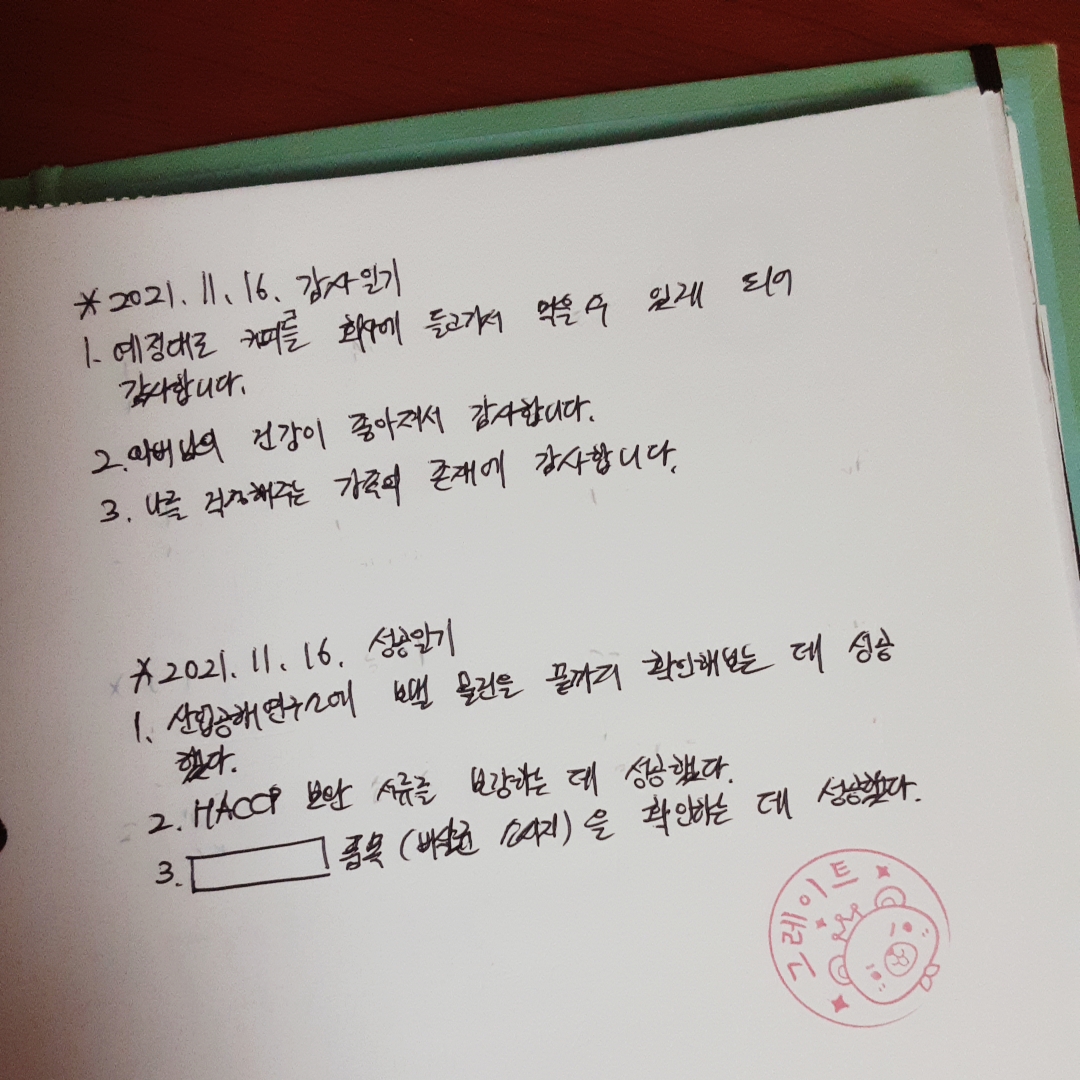 *2021. 11. 16. 감사일기
1. 예정대로 커피를 회사에 들고가서 먹을 수 있게 되어
감사합니다.
2. 아버님의 건강이 좋아져서 감사합니다.
3. 나를 걱정해주는 가족의 존재에 감사합니다.
*2021. 11. 16. 성공일기
1. 산업공해연구소에 보낼 물건을 끝까지 확인해보는 데 성공
했다.
2. HACCP 보완 서류를 보강하는 데 성공했다.
3. 품목 (바살균 소시지)을 확인하는 데 성공했다.
그레이트